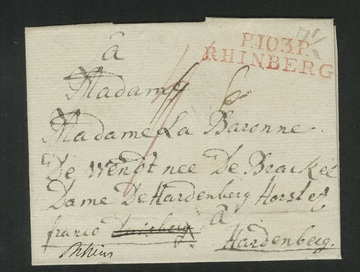 P.103.P.
RHINBERG
à
Madame
Madame La Baronne
De Wendt nee De Brackel
Dame De Hardenberg Horster
à
franco Duisberg
Hardenberg.